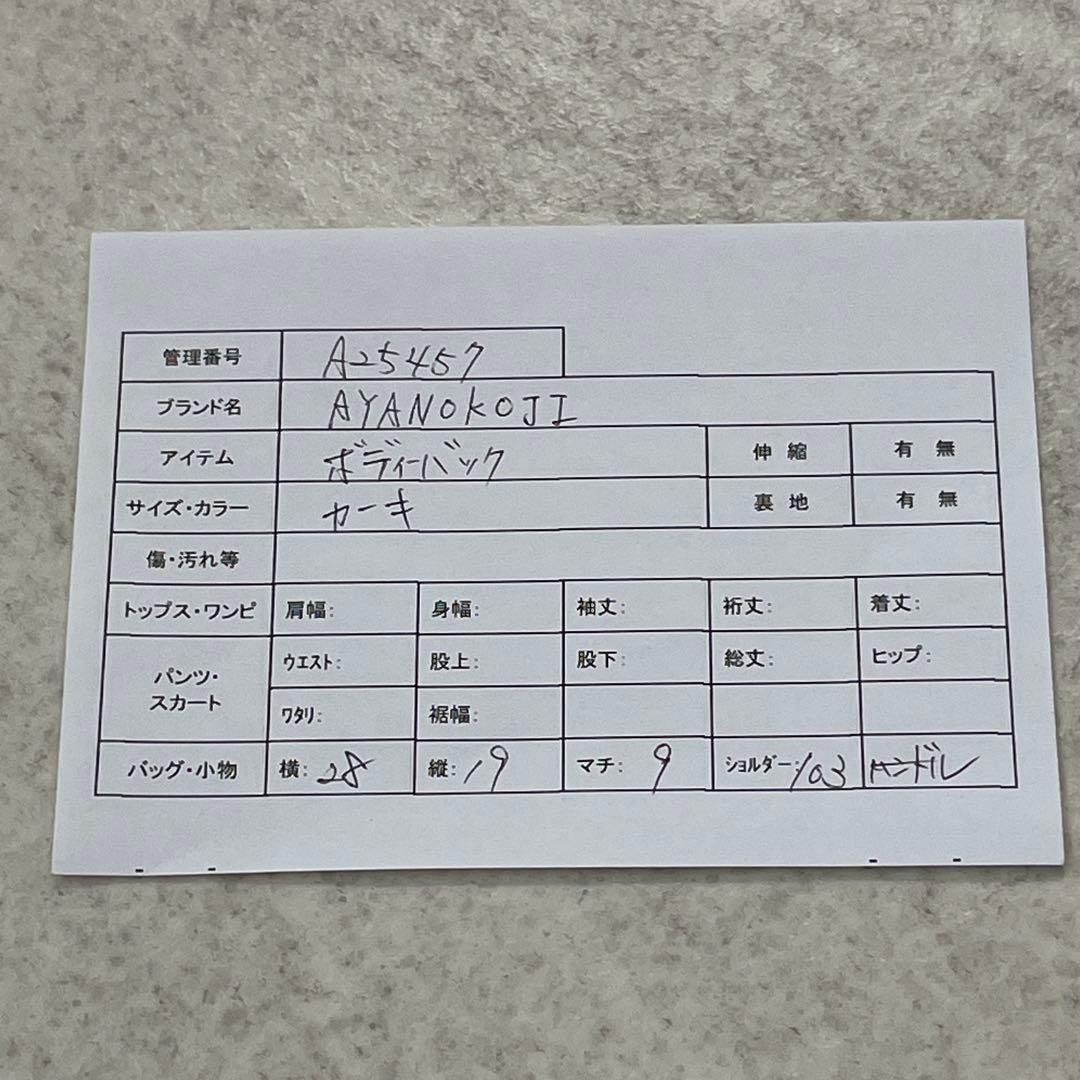 管理番号 A25457
ブランド名 AYANOKOJI
アイテム ボディーバック 伸縮 有 無
サイズ・カラー カーキ 裏地 有 無
傷・汚れ等
トップス・ワンピ 肩幅: 身幅: 袖丈: 裄丈: 着丈:
パンツ・スカート ウエスト: 股上: 股下: 総丈: ヒップ:
ワタリ: 裾幅:
バッグ・小物 横: 28 縦: 19 マチ: 9 ショルダー: 103 ハンドル